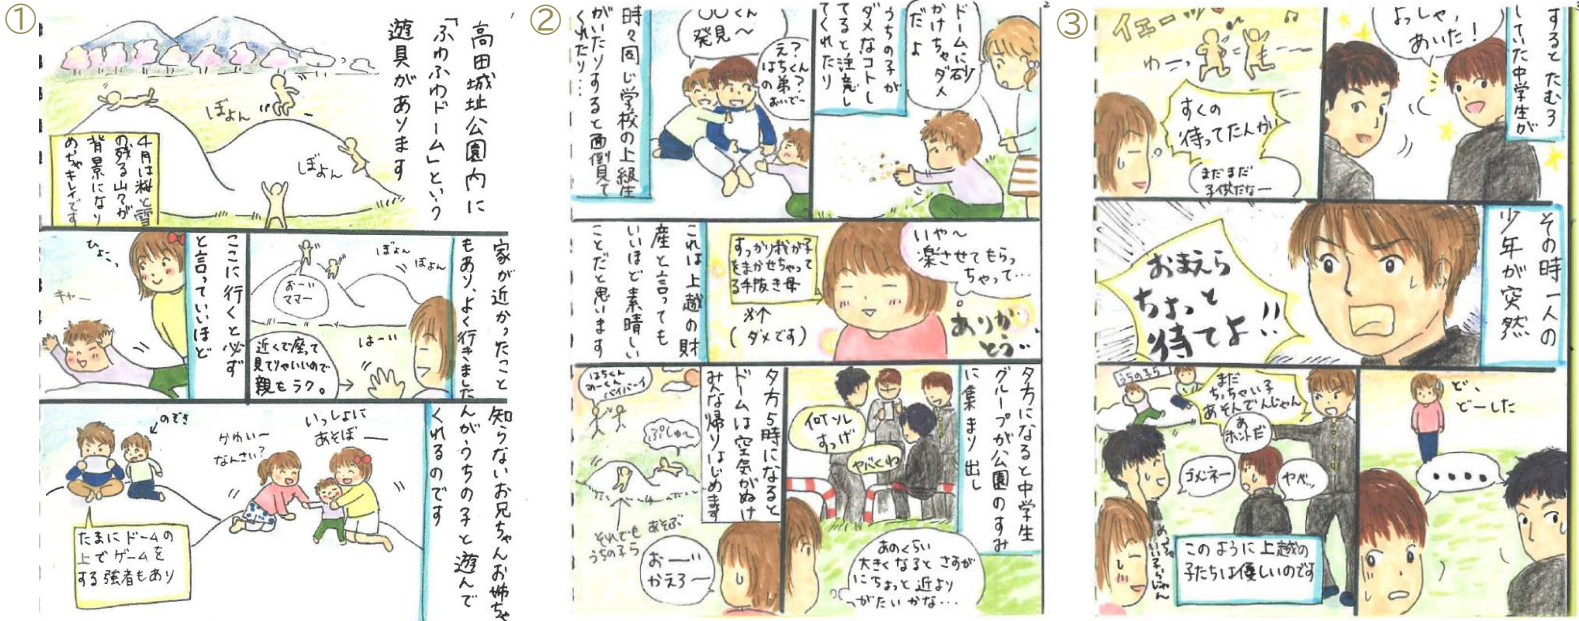 ①
高田城址公園内に
「ふわふわドーム」という
遊具があります
ぼよん
ぼよん
4月は桜と雪
の残る山々が
背景になり
めっちゃキレイです
家が近かったこと
もあり、よく行きましたが
ぼよん
ぼよん
おーい
ママー
はーい
近くで座って
見てりゃいいので
親もラク。
ここに行くと必ず
と言っていいほど
ひょこっ
キャー
知らないお兄ちゃんお姉ちゃ
んがうちの子と遊んで
くれるのです
いっしょに
あそぼー
かわいー
なんさい?
のぞき
たまにドームの
上でゲームを
する強者もあり
②
2
ドームに砂
かけちゃダメ
だよ
うちの子が
ダメなコトし
てると注意し
てくれたり
〇〇くん
発見〜
時々同じ学校の上級生
がいたりすると面倒見て
くれたり…
いや〜
楽させてもらっ
ちゃって…
ありが
とう…
すっかり我が子
をまかせちゃって
る手抜き母
(ダメです)
これは上越の財
産と言っても
いいほど素晴しい
ことだと思います
夕方になると中学生
グループが公園のすみ
に集まり出し
何ソレ
すっげ
ヤバくね
あのくらい
大きくなると さすが
にちょっと近より
がたいかな…
夕方5時になると
ドームは空気がぬけ
みんな帰りはじめます
はちくん
みーくん
バイバーイ
ぷしゅ〜
それでも あそぶ
うちの子ら
おーい
かえろー
③
3
するとたむろ
していた中学生が
よっしゃ、
あいた!
イェーッ
わーっ
すくの
待ってたんかい
まだまだ
子供だなー
その時一人の
少年が突然
おまえら
ちょっと
待てよ!!
ど、
どーした
・・・・
うちの子ら
まだ
ちっちゃい子
あそんでんじゃん
あ
ホントだ
ゴメンネー
ヤベッ
めっちゃ
いい子らじゃん
このように上越の
子たちは優しいのです